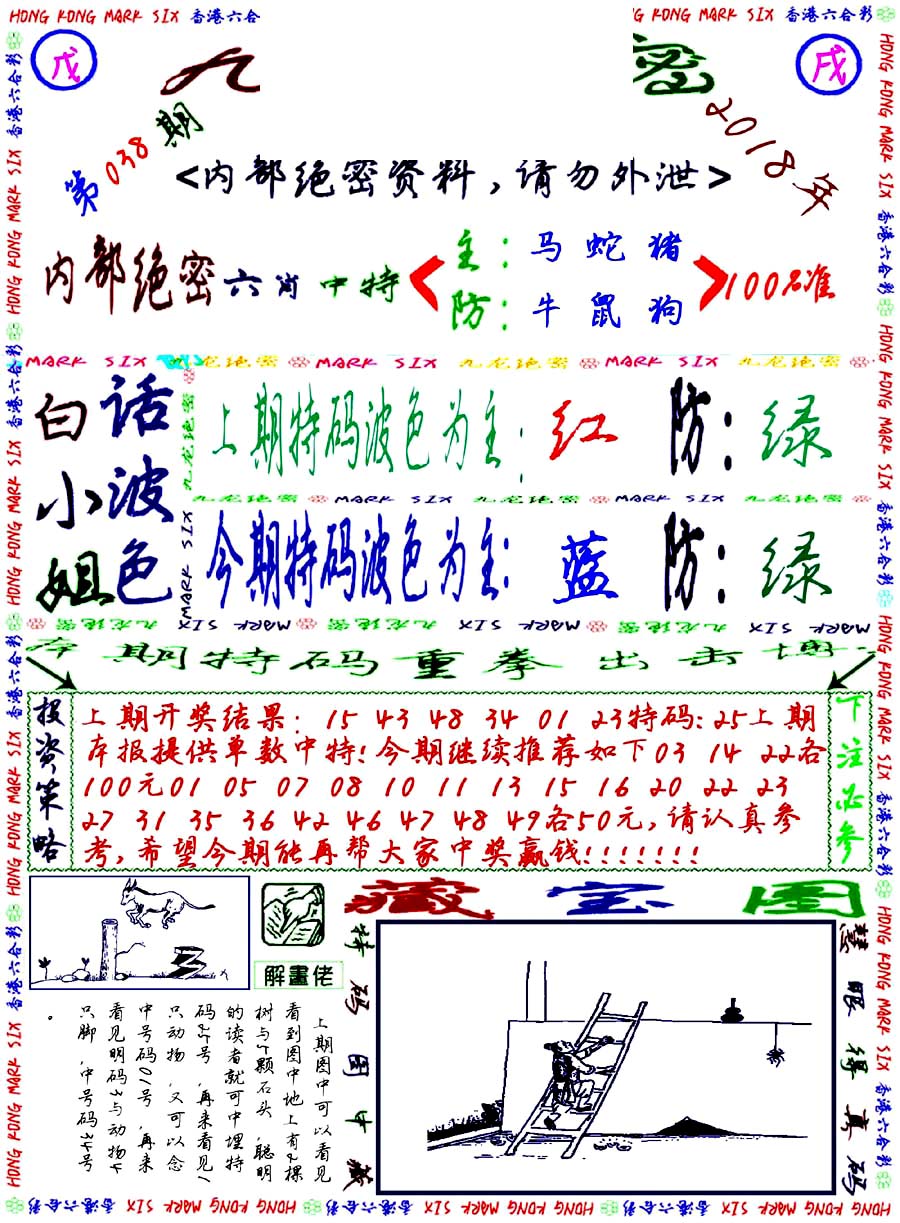 HONG KONG MARK SIX 香港六合
G KONG MARK SIX 香港六合彩
戊
九
密
戌
第038期
2018年
<内部绝密资料,请勿外泄>
内部绝密六肖中特
主:马 蛇 猪
防:牛 鼠 狗
100%准
MARK SIX 九龙绝密 MARK SIX 九龙绝密 MARK SIX 九龙绝密
白小姐
话波色
上期特码波色为主:红 防:绿
九龙绝密 MARK SIX 九龙绝密 MARK SIX 九龙绝密
今期特码波色为主:蓝 防:绿
九龙绝密 MARK SIX 九龙绝密 MARK SIX 九龙绝密 MARK SIX
本期特码重拳出击博
投资策略
上期开奖结果: 15 43 48 34 01 23特码:25上期
本报提供单数中特!今期继续推荐如下03 14 22各
100元01 05 07 08 10 11 13 15 16 20 22 23
27 31 35 36 42 46 47 48 49各50元,请认真参
考,希望今期能再帮大家中奖赢钱!!!!!!!
下注必参
解畫佬
藏宝图
上期图中可以看见
看到图中地上有2棵
树与5颗石头,聪明
的读者就可中埋特
码25号,再来看见1
只动物,又可以念
中号码01号,再来
看见明码3与动物4
只脚,中号码34号
。
特码图中藏
慧眼得真码
HONG KONG MARK SIX 香港六合彩